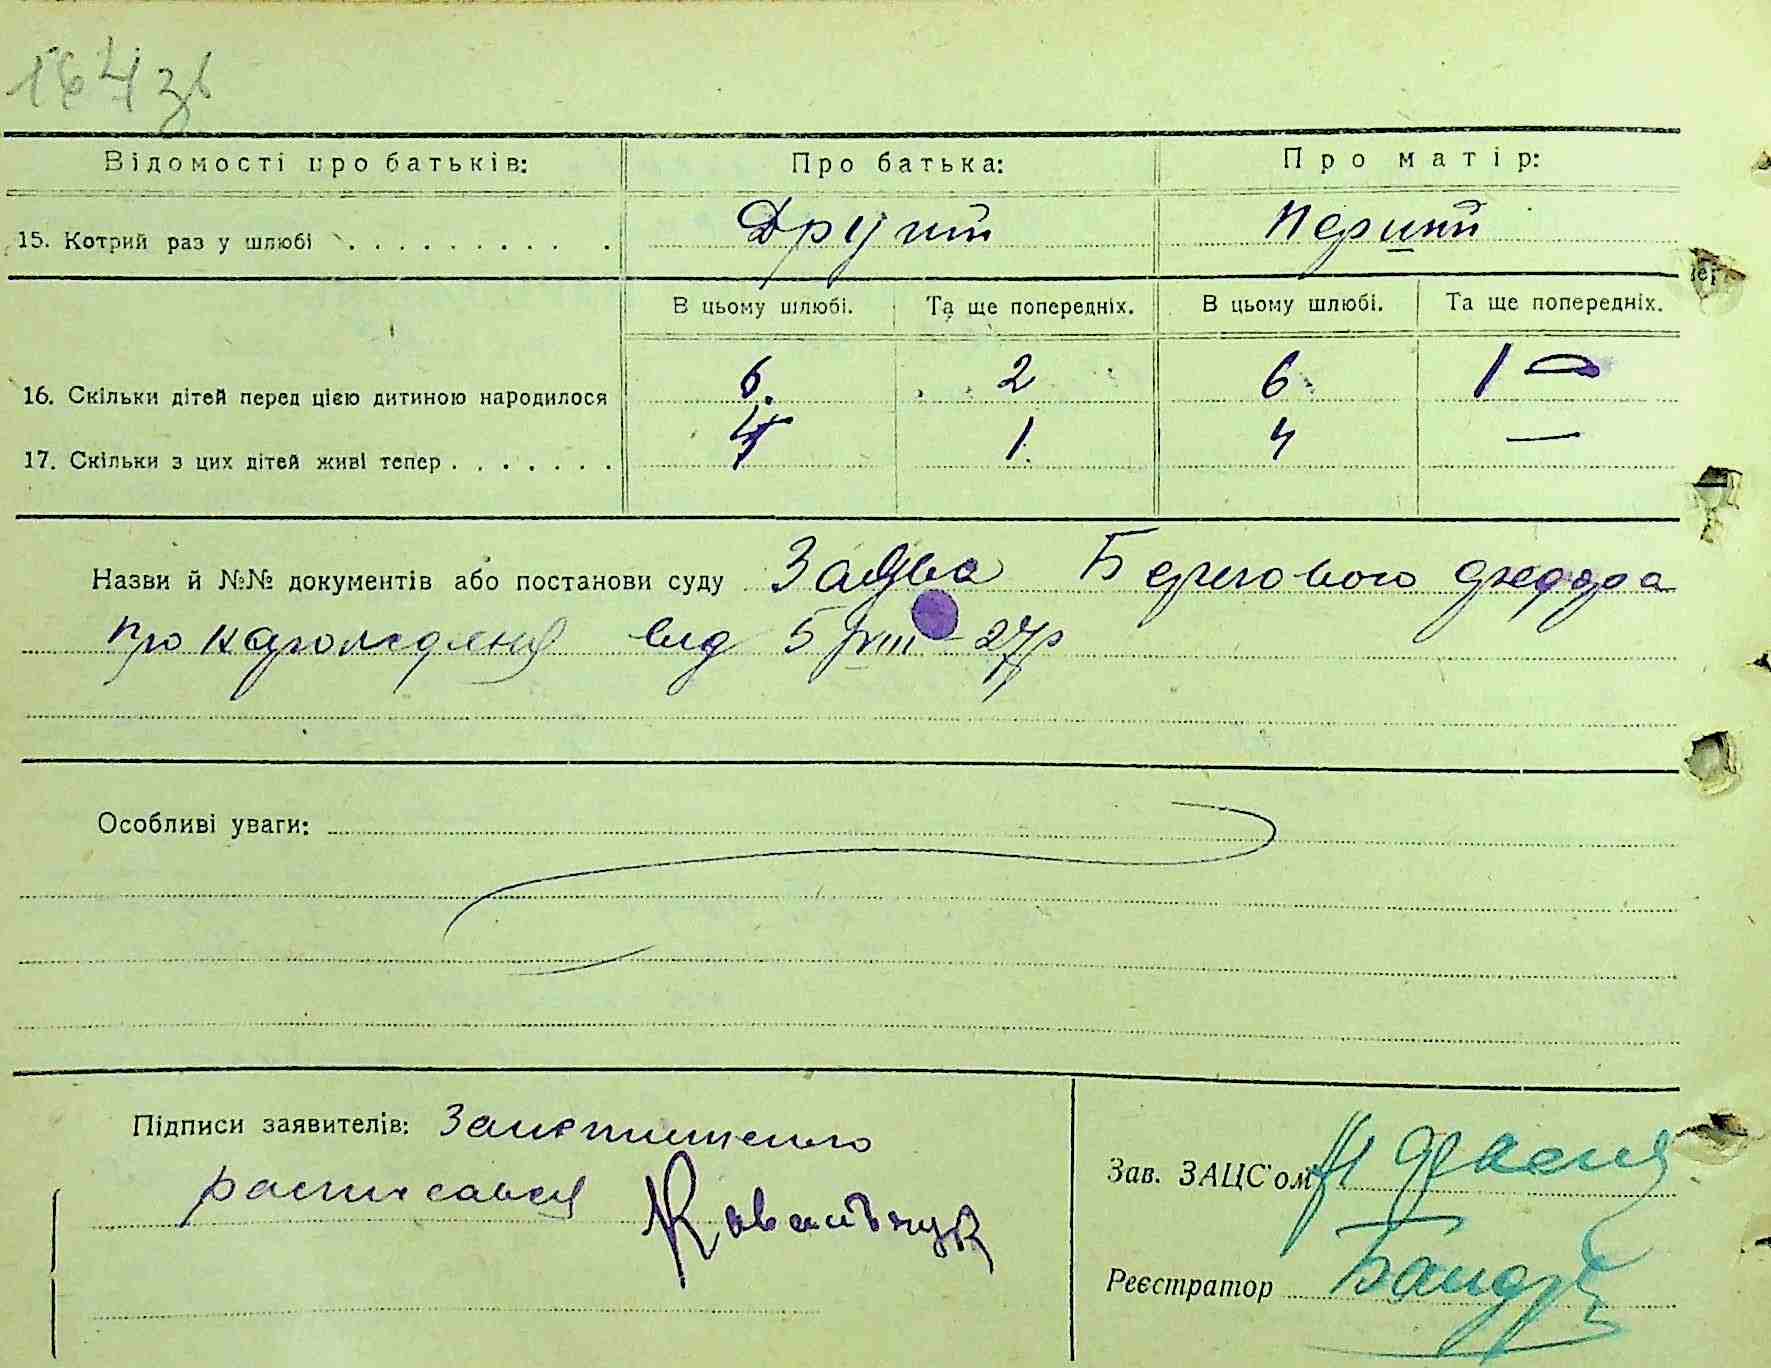 164 зв
Відомості про батьків: Про батька: Про матір:
15. Котрий раз у шлюбі . . . . . . . . . . Другий Перший
В цьому шлюбі. Та ще попередніх. В цьому шлюбі. Та ще попередніх.
16. Скільки дітей перед цією дитиною народилося 6. 2 6 1 —
17. Скільки з цих дітей живі тепер . . . . . . . 4 1. 4 —
Назви й №№ документів або постанови суду Заява Берегового
про народження від 5/VIII-27р
Особливі уваги:
Підписи заявителів: За
расписався Ковальчук
Зав. ЗАЦС'ом
Реєстратор